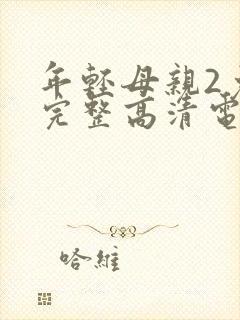 年輕母親2
完整高清電
哈維